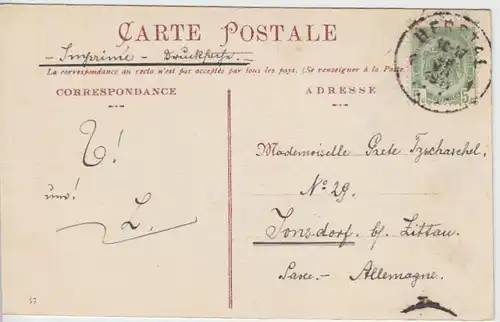 CARTE POSTALE
Imprimé - Drucksache
La correspondance au recto n'est pas acceptée par tous les pays. (Se renseigner à la Poste
CORRESPONDANCE
ADRESSE
5
Mademoiselle Grete Tzschaschel.
No 29.
Jonsdorf b/ Zittau.
Saxe - Allemagne.
L.
37